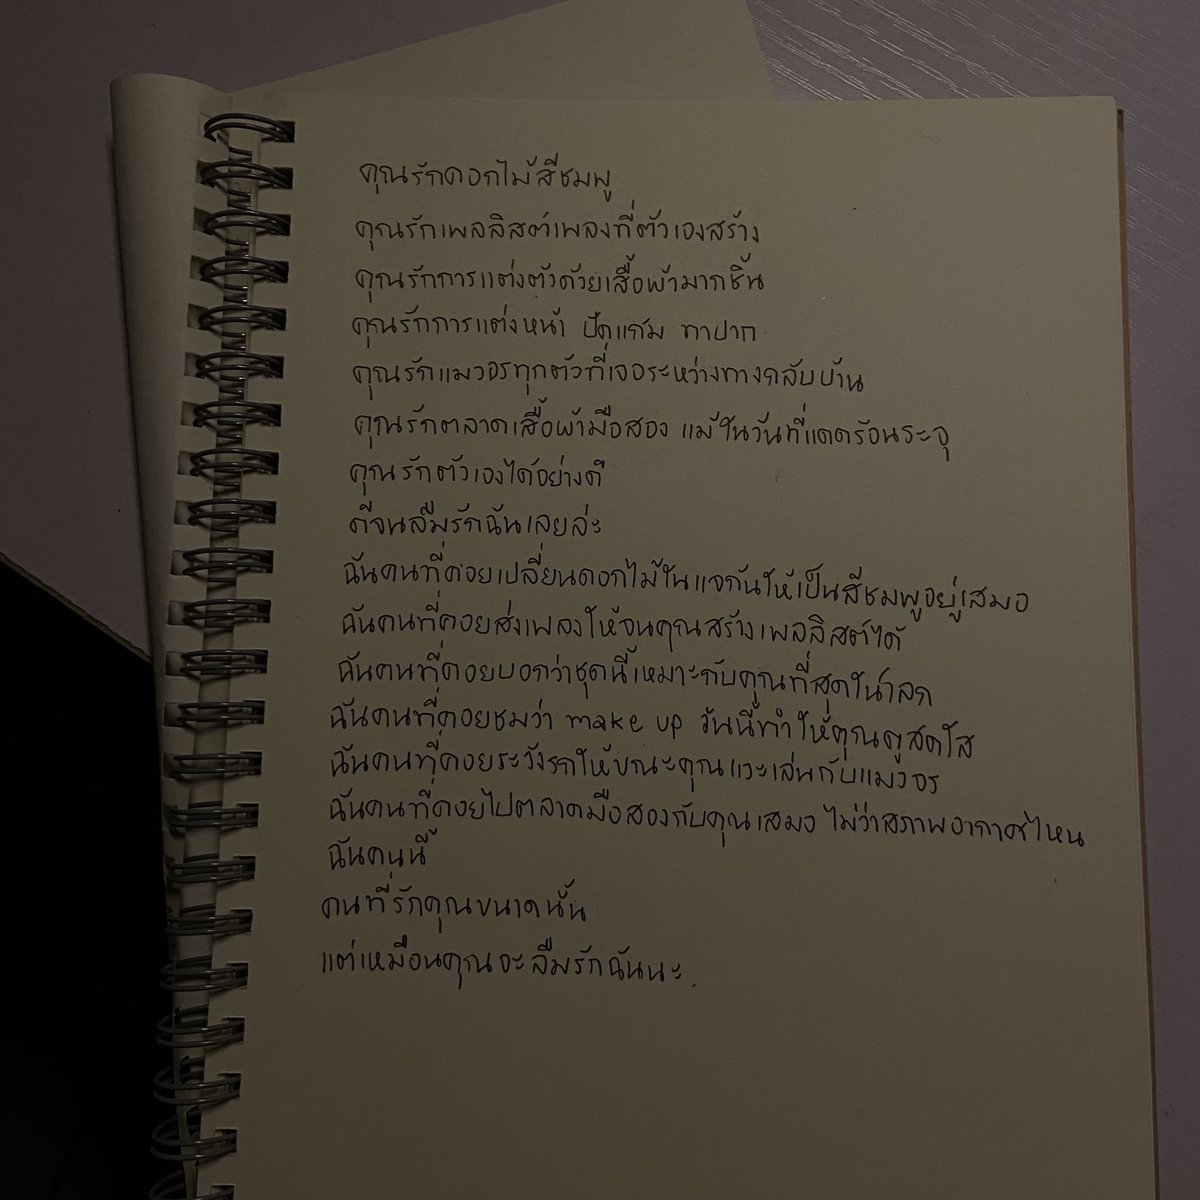 คุณรักดอกไม้สีชมพู
คุณรักเพลลิสต์เพลงที่ตัวเองสร้าง
คุณรักการแต่งตัวด้วยเสื้อผ้ามากชิ้น
คุณรักการแต่งหน้า ปัดแก้ม ทาปาก
คุณรักแมวจรทุกตัวที่เจอระหว่างทางกลับบ้าน
คุณรักตลาดเสื้อผ้ามือสอง แม้ในวันที่แดดร้อนระอุ
คุณรักตัวเองได้อย่างดี
ดีจนลืมรักฉันเลยล่ะ
ฉันคนที่คอยเปลี่ยนดอกไม้ในแจกันให้เป็นสีชมพูอยู่เสมอ
ฉันคนที่คอยส่งเพลงให้จนคุณสร้างเพลลิสต์ได้
ฉันคนที่คอยบอกว่าชุดนี้เหมาะกับคุณที่สุดในโลก
ฉันคนที่คอยชมว่า make up วันนี้ทำให้คุณดูสดใส
ฉันคนที่คอยระวังรถให้ขณะคุณแวะเล่นกับแมวจร
ฉันคนที่คอยไปตลาดมือสองกับคุณเสมอ ไม่ว่าสภาพอากาศไหน
ฉันคนนี้
คนที่รักคุณขนาดนั้น
แต่เหมือนคุณจะลืมรักฉันนะ.